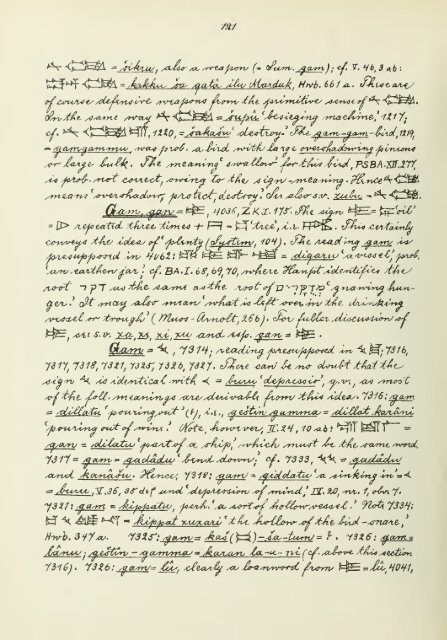 121
= šikru, also a weapon (= Sum. gam); cf. V. 46, 3 ab:
= kakku ša qatâ ilu Marduk, Hwb. 661 a. These are
of course defensive weapons from the primitive sense of
In the same way = šupû 'besieging machine,' 1217;
cf. 1220, = šakašu 'destroy.' The gam-gam-bird, 1219,
= gamgammu, was prob. a bird with large overshadowing pinions
or large bulk. The meaning 'swallow' for this bird, PSBA. XII. 277,
is prob. not correct, owing to the sign-meaning. Hence
means 'overshadow, protect, destroy.' See also s.v. zubu, =
Gam, gan = 4036, ZK. I. 175. The sign = 'oil'
= repeated three times + = 'tree', i.e. This certainly
conveys the idea of 'plenty' (System, 104). The reading gam is
presupposed in 4062: = digaru 'a vessel', prob.
'an earthen jar'; cf. BA. I. 68, 69, 70, where Haupt identifies the
root דקר as the same as the root of 'gnawing hun-
ger.' It may also mean 'what is left over in the drinking
vessel or trough' (Muss-Arnolt, 256). For fuller discussion of
see s.v. xa, xe, xi, xu and esp. gan =
Gam = 7314; reading presupposed in 7316,
7317, 7318, 7321, 7325, 7326, 7327. There can be no doubt that the
sign is identical with = buru 'depressio', q.v., as most
of the foll. meanings are derivable from this idea. 7316: gam
= dillatu 'pouring out' (?), i.e., geštin gamma = dillat karâni
'pouring out of wine.' Note, however, II. 24, 10 ab: =
gan = dilatu 'part of a ship,' which must be the same word.
7317 = gam = gadâdu 'bend down'; cf. 7333, = gadâdu
and kanâšu. Hence, 7318: gam = giddatu 'a sinking in' =
= buru, V. 36, 35 def and 'depression of mind,' IV. 20, nr. 1, obv. 7.
7321: gam = kippatu, perh. 'a sort of hollow vessel.' Note 7334:
= kippat xuxari 'the hollow of the bird-snare,'
Hwb. 347 a. 7325: gam = kaš ( ) - ša-tum = ?. 7326: gam =
; geštin-gamma = karan la-u-ni (cf. above this section
7316). 7326: gam = lû, clearly a loanword from = lû, 4041,